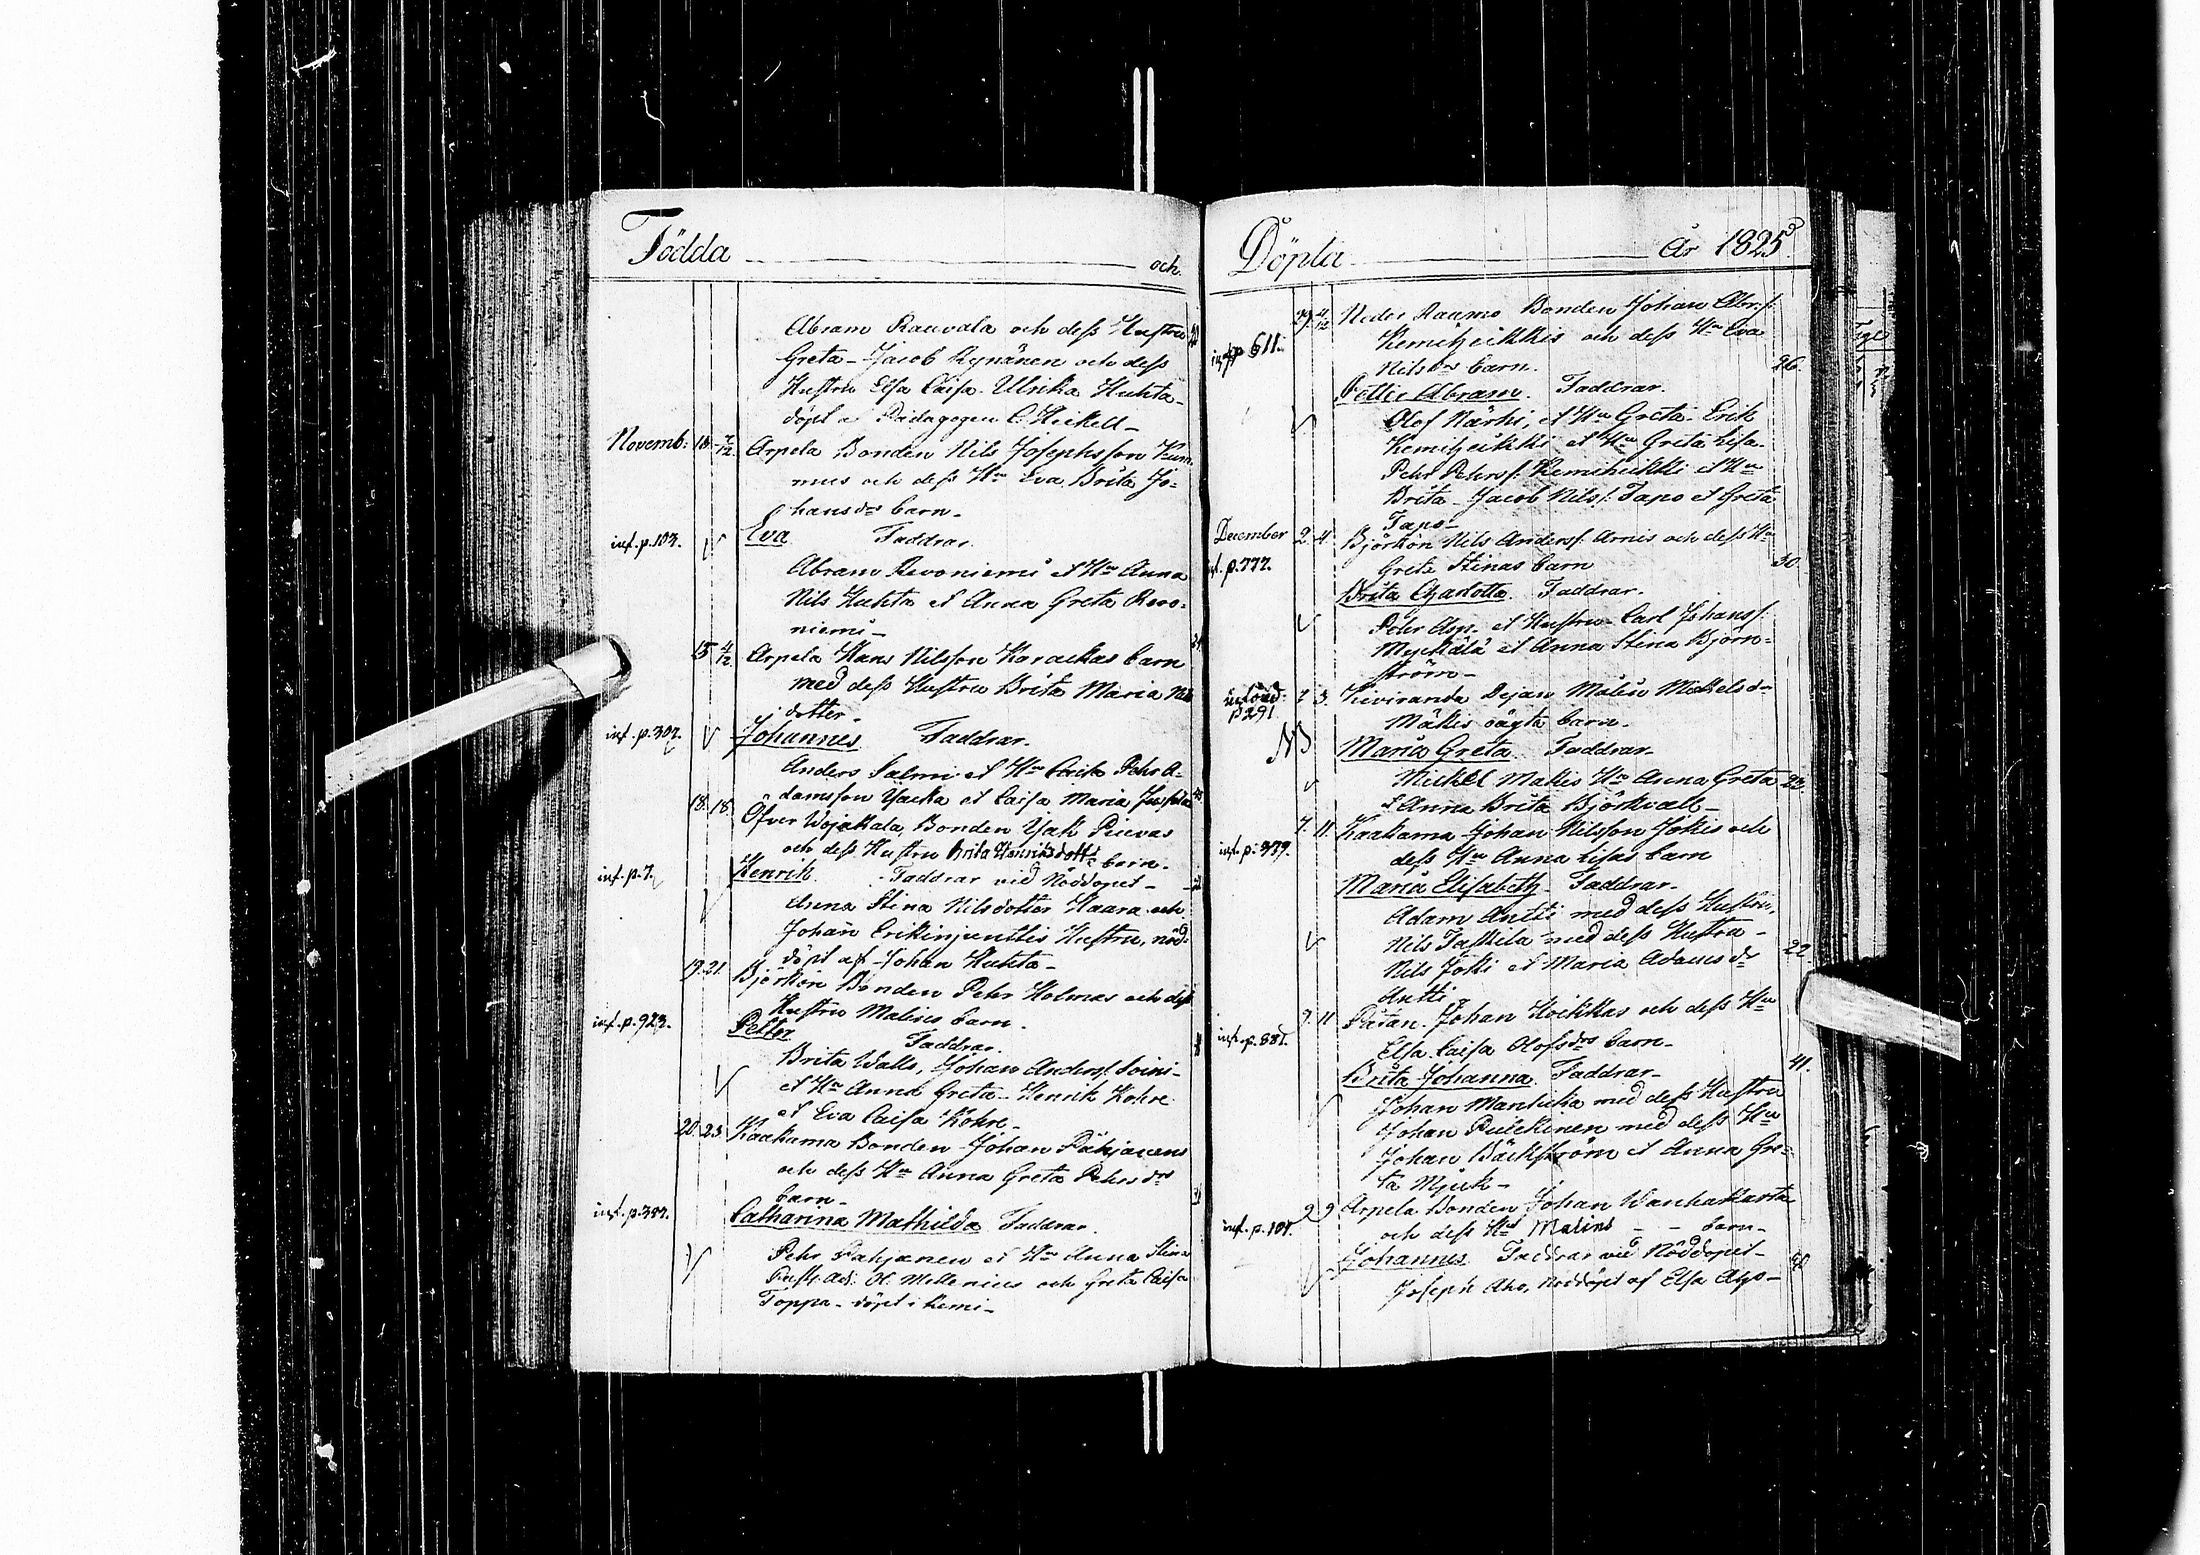 Födda och
Abram Rauvala och dess Hustru
Greta - Jacob Rynänen och dess
Hustru Elsa Caisa. Ulrika Huhta-
döpt a Pædagogen C. Heikell -
Novemb: 18 4/12 Arpela Bonden Nils Josephsson Kum
mus och dess Hu Eva Brita Jo-
hansdrs barn.
inf. p. 103. Eva Faddrar.
Abram Revoniemi et Hu Anna
Nils Huhta et Anna Greta Revo-
niemi -
15 4/12 Arpela Hans Nilsson Karackas barn
med dess Hustru Brita Maria Nils
dotter.
inf. p. 307. Johannes Faddrar.
Anders Salmi et Hu Cajsa Pehr A-
damsson Yacka et Caisa Maria
18. 18. Öfver Wojakala, Bonden Isak Piuvas
och dess Hustru Brita Henriksdotts barn.
inf. p. 7. Henrik Faddrar vid Nöddopet -
Anna Stina Nilsdotter Haara och
Johan Erikinjunttis Hustru, nöd-
döpt af Johan Huhta -
19. 21. Björkön Bonden Pehr Holmas och dess
Hustru Malins barn.
inf. p. 923. Petter
Faddrar.
Brita Walls, Johan Anders. Soini -
et Hu Anna Greta - Henrik Kohre
et Eva Caisa Kohre -
20. 23 Kaakama Bonden Johan Pahjanens
och dess Hu Anna Greta Pehrsdrs
barn -
inf. p. 387. Catharina Mathilda Faddrar.
Pehr Pahjanen et Hu Anna Stina
Ol. Mellenius och Greta Caisa
Toppa - döpt i Kemi -
Döpta År 1825
29 4/12 Neder Raumo Bonden Johan Abr:s.
inf. p 611. Kemiheikkis och dess Hu Eva
Nilsdrs barn. 26.
Petter Abram Faddrar.
Olof Närhi, et Hu Greta. Erik
Kemiheikki et Hu Greta Lisa.
Pehr Pehrss. Kemiheikki et Hu
Brita - Jacob Nils. Tapo et Greta
Tapo -
December 2. 4. Björkön Nils Anderss. Arnis och dess Hu
inf. p. 777. Greta Stinas barn 30.
Brita Charlotta Faddrar.
Pehr Asp. et Hustru - Carl Johanss.
Myckälä et Anna Stina Björn-
ström -
p 291 2. 3. Kiviranda Dejan Malin Mickelsdr
Mäkis oägta barn.
NB Maria Greta Faddrar -
Mickel Mäkis Hu Anna Greta 22.
& Anna Brita Björkvall -
7. 11. Kaakama Johan Nilsson Jokis och
inf. p. 379. dess Hu Anna Lisas barn
Maria Elisabeth - Faddrar -
Adam Antti med dess Hustru,
Nils Taskila med dess Hustru -
Nils Joki et Maria Adamsdr 22.
Antti
9. 11 Räian. Johan Hoikkas och dess Hu
inf. p. 881. Elsa Caisa Olofsdrs barn -
Brita Johanna Faddrar - 41.
Johan Mantuka med dess Hustru
Johan Puickinen med dess Hu
Johan Bäckström et Anna Gre-
ta Mjuk -
9 9 Arpela Bonden Johan Wanhakarta
inf. p. 107. och dess Hu Malins - - barn -
Johannes Faddrar vid Nöddopet -
Joseph Aho, Nöddöpt af Elsa Aho -